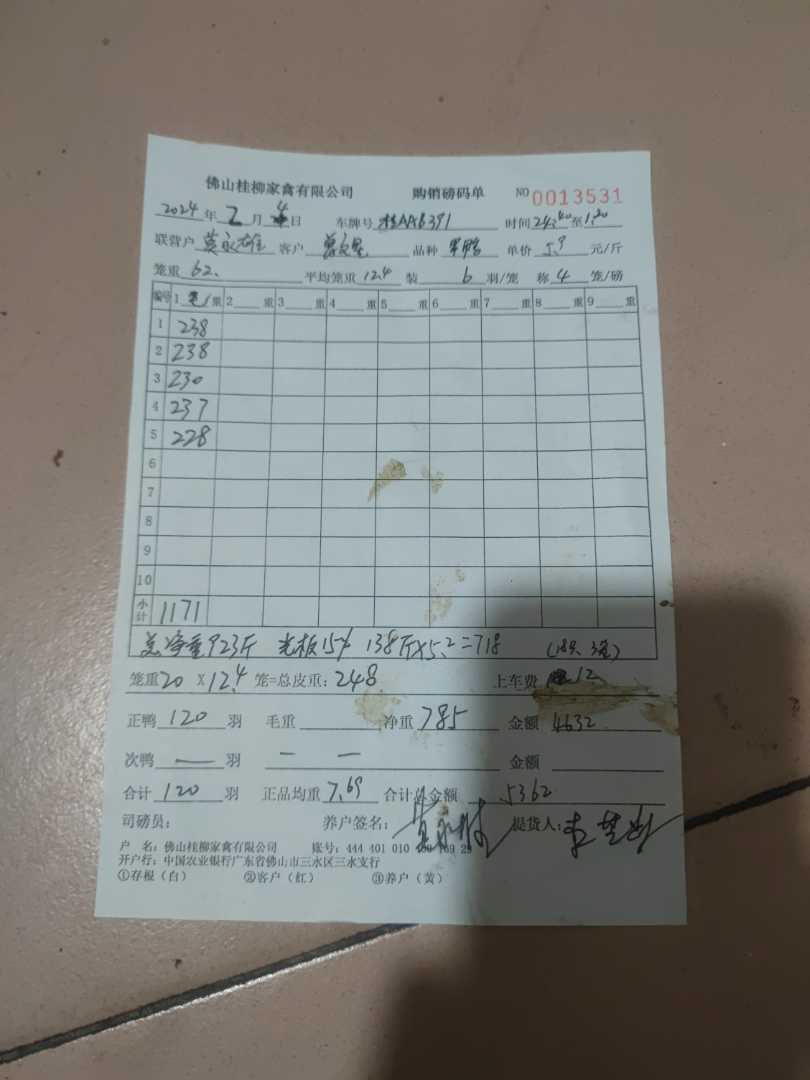 佛山桂柳家禽有限公司 购销磅码单 NO 0013531
2024年2月4日 车牌号 桂AAB391 时间24:40至1:20
联营户 莫永雄 客户 品种 单价 5.9 元/斤
笼重 62. 平均笼重 12.4 装 6 羽/笼 称 4 笼/磅
编号 1 重 2 重 3 重 4 重 5 重 6 重 7 重 8 重 9 重
1 238
2 238
3 230
4 237
5 228
6
7
8
9
10
小计 1171
总净重923斤 光板15% 138斤X5.2=718
笼重20 X 12.4 笼=总皮重：248 上车费 12
正鸭 120 羽 毛重 净重 785 金额 4632
次鸭 — 羽 — — 金额
合计 120 羽 正品均重 7.69 合计总金额 5362
司磅员： 养户签名： 提货人：
户 名：佛山桂柳家禽有限公司 账号：444 401 010
开户行：中国农业银行广东省佛山市三水区三水支行
①存根（白） ②客户（红） ③养户（黄）